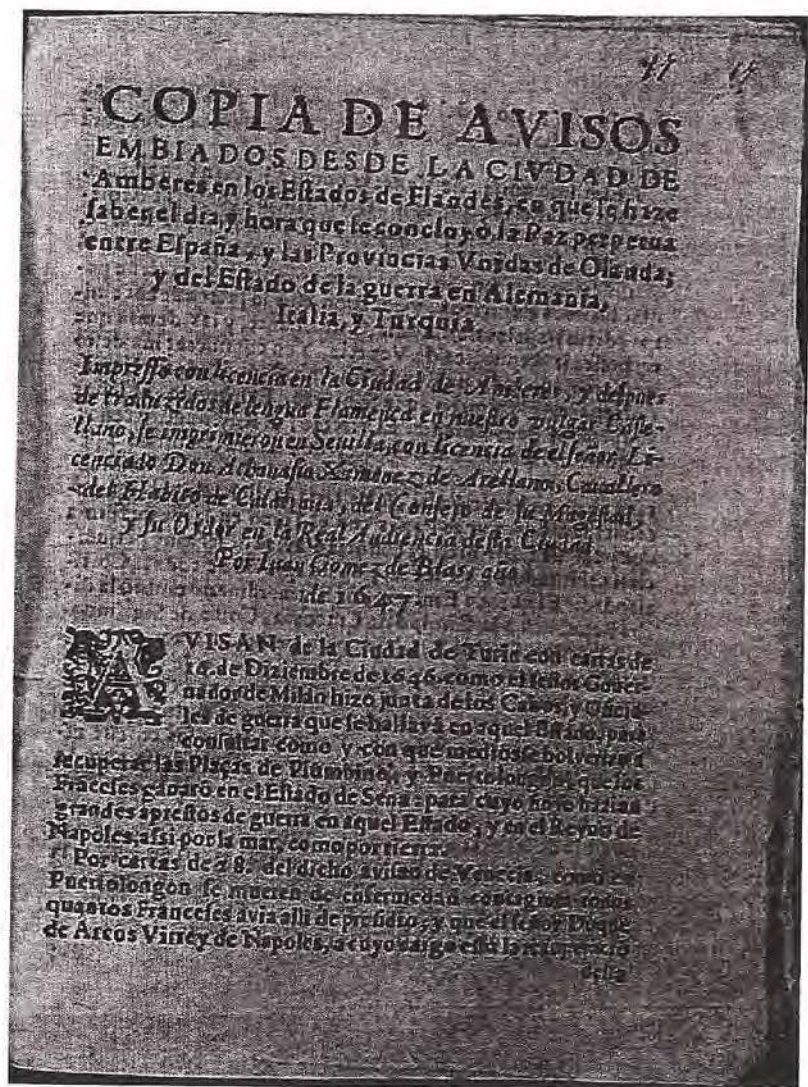 COPIA DE AVISOS
EMBIADOS DESDE LA CIVDAD DE
Amberes en los Estados de Flandes, en que se haze
saber el dia, y hora que se concluyò la Paz perpetua
entre España, y las Provincias Vnidas de Olanda;
y del Estado de la guerra en Alemania,
Italia, y Turquia.
Impresso con licencia en la Ciudad de Amberes, y despues
de traduzidos de lengua Flamenca en nuestro vulgar Caste-
llano, se imprimieron en Sevilla, con licencia de el señor Li-
cenciado Don Ximenez de Arellano, Cavallero
del Habito de Calatrava, del Consejo de su Magestad,
y su Oydor en la Real Audiencia desta Ciudad.
Por Iuan Gomez de Blas, año
de 1647.
AVISAN de la Ciudad de Turin con cartas de
16. de Diziembre de 1646. como el señor Gover-
nador de Milan hizo junta de los Cabos, y Oficia-
les de guerra que se hallavã en aquel Estado, para
consultar como y con que medios se bolverian a
recuperar las Plaças de Piumbino, y Puertolongon, que los
Franceses ganarõ en el Estado de Sena: para cuyo hazian
grandes aprestos de guerra en aquel Estado, y en el Reyno de
Napoles, assi por la mar, como por tierra.
Por cartas de 28. del dicho avisan de Venecia, como en
Puertolongon se mueren de enfermedad contagiosa todos
quantos Franceses avia alli de presidio, y que el señor Duque
de Arcos Virrey de Napoles, a cuyo cargo està la